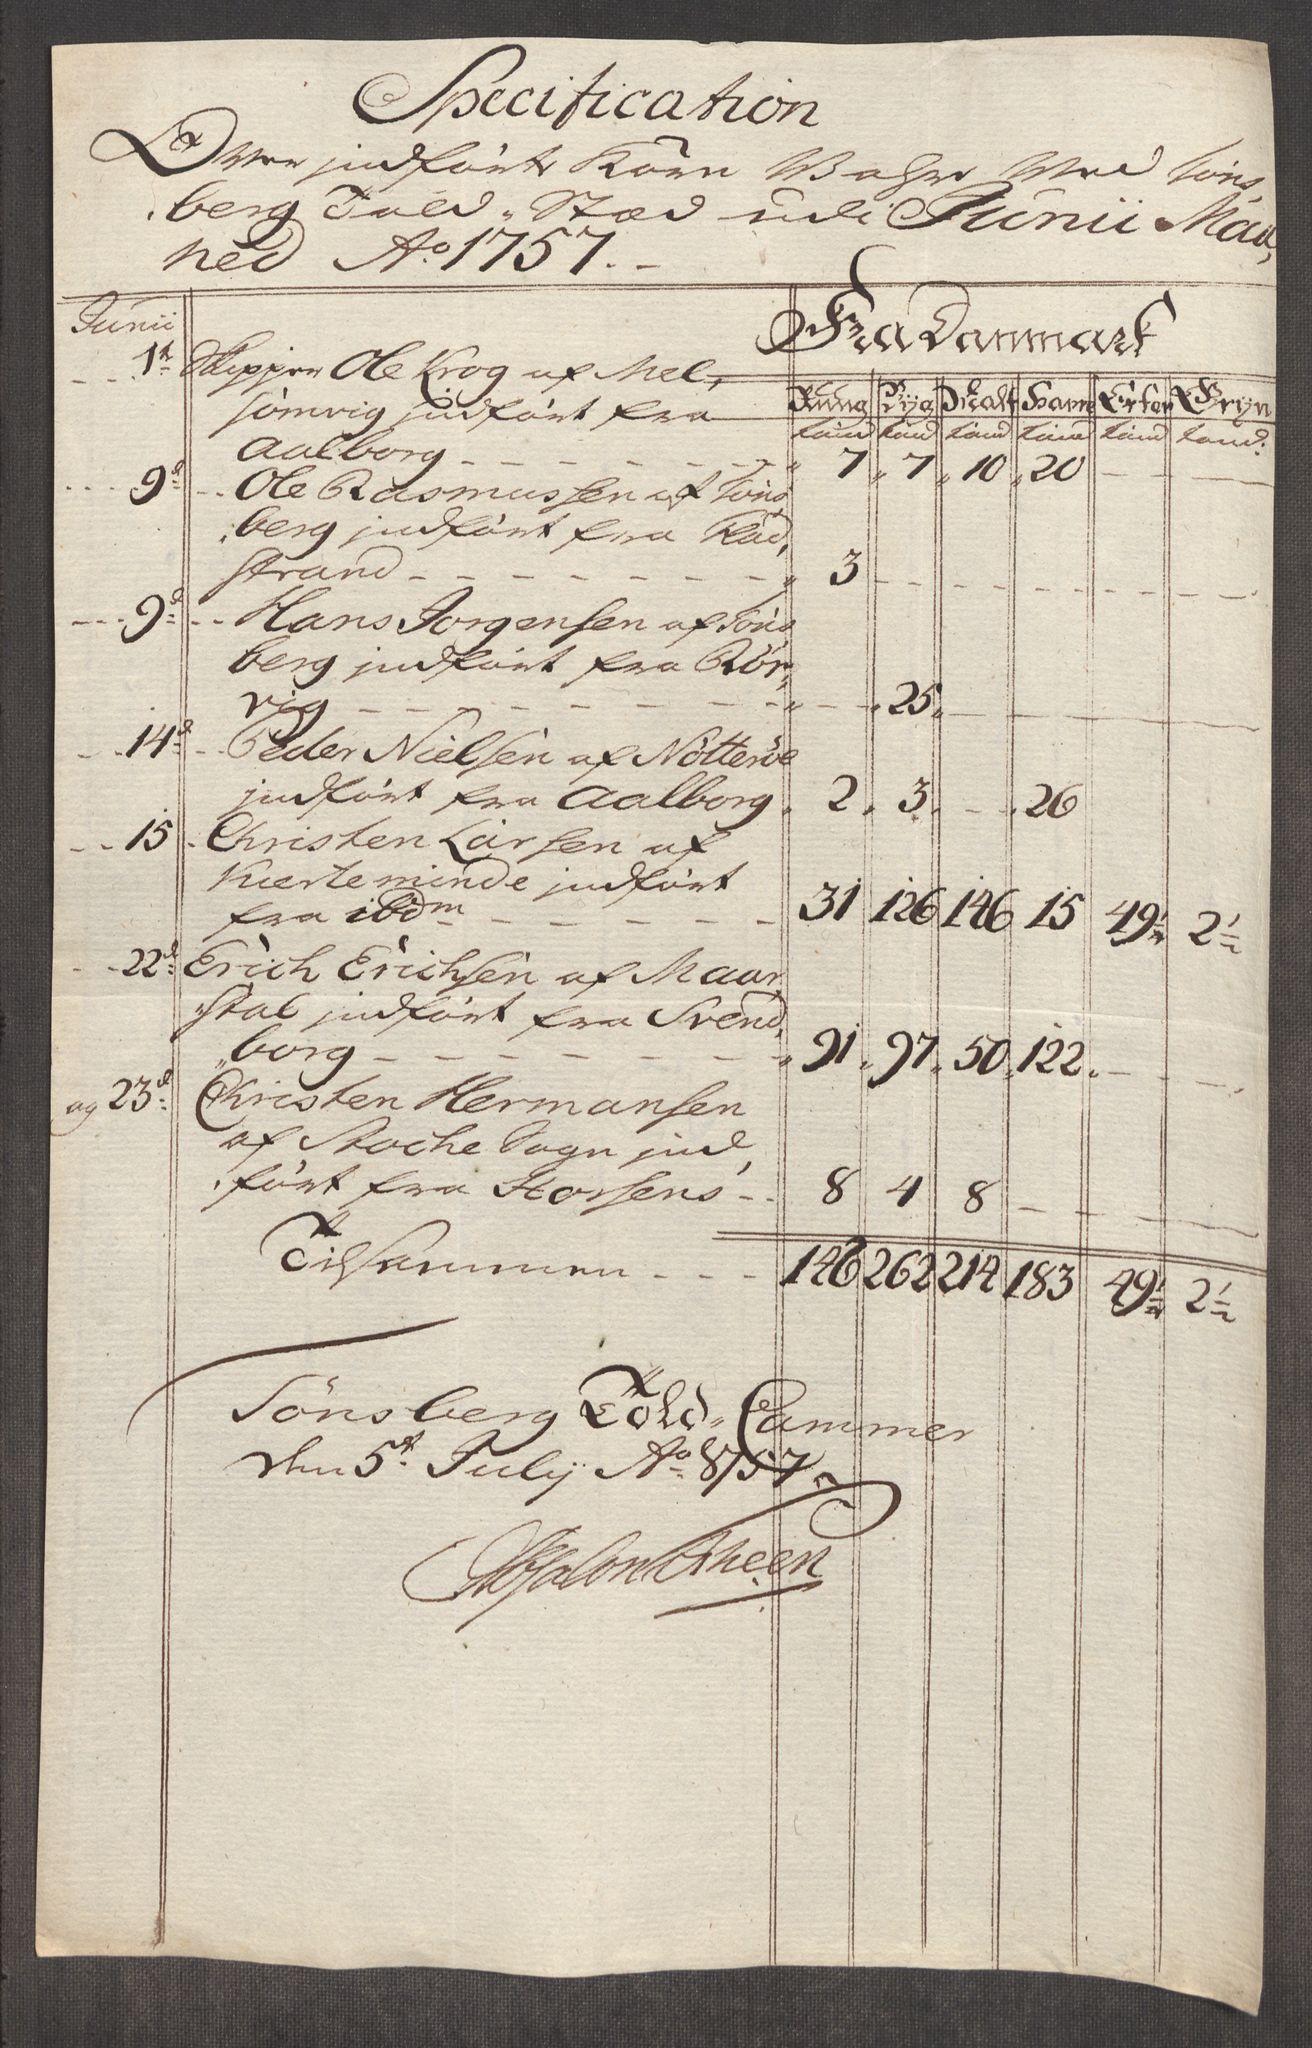 Specification
Over indförte Korn Vahre ved Töns,
berg Told-Stæd udi Junii Maa,
ned Ao. 1757.
Junii
Fra Danmark
1t Skipper Ole Krog af Mel,
Rug Byg Malt Havre Erter Gryn
tönd tönd tönd tönd tönd tönd:
sömvig indfört fra
Aalborg 7 7 10 20
9d Ole Rasmussen af Töns,
berg indfört fra Flad,
strand 3
9d Hans Jorgensen af Töns
berg indfört fra Rör,
vig 25
14d Peder Nielsen af Nötteröe
indfört fra Aalborg 2 3 26
15 Christen Larsen af
Kierteminde indfört
fra ibdm 31 126 146 15 49½ 2½
22d Erich Erichsen af Maar,
stal indfört fra Svend,
borg 91 97 50 122
og 23d Christen Hermansen
af Stoche Sogn ind,
fört fra Horsens 8 4 8
Tilsammen 146 262 214 183 49½ 2½
Tönsberg Told-Cammer
den 5t July Ao 1757
Absalon Rheen